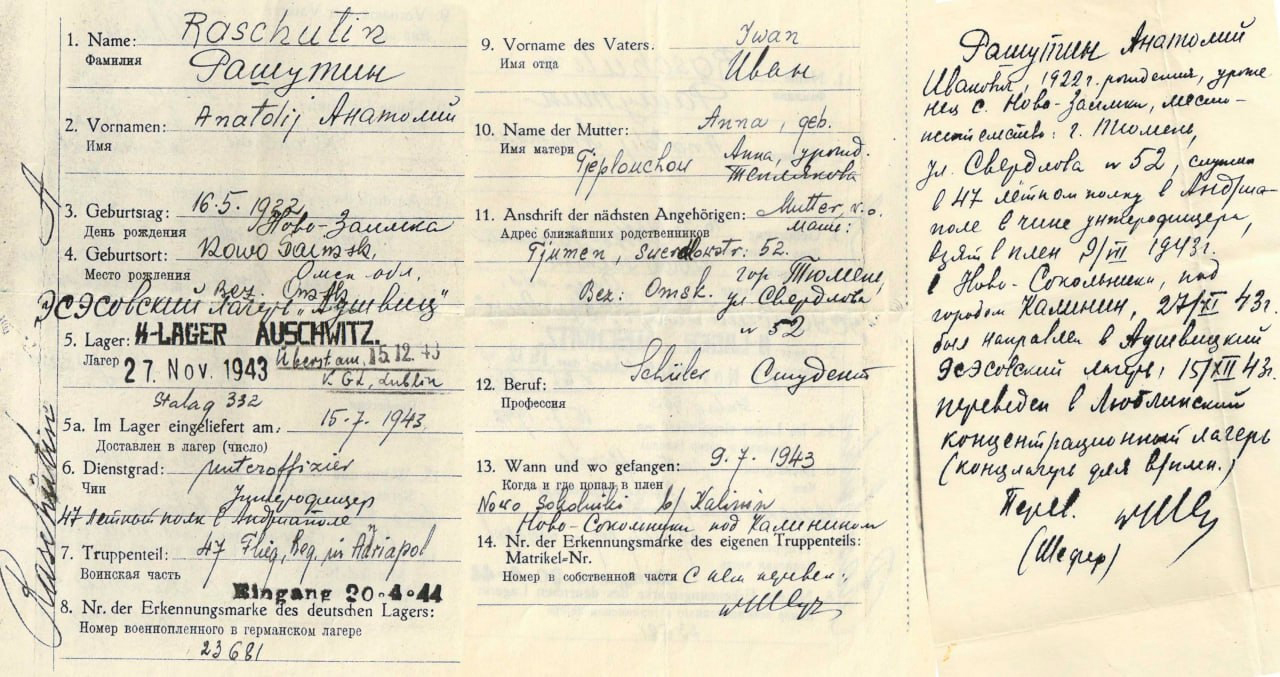 1. Name: Raschutin
Фамилия Рашутин
2. Vornamen: Anatolij Анатолий
Имя
3. Geburtstag: 16.5.1922
День рождения Ново-Заимка
4. Geburtsort: Nowo Saimsk,
Место рождения Омск. обл.
Bez. Omsk
Эсэсовский лагерь „Аушвиц"
5. Lager: SS-LAGER AUSCHWITZ.
Лагерь 27. Nov. 1943 Überst. am. 15.12.43
K.GL. Lublin
Stalag 332
5a. Im Lager eingeliefert am: 15.7.1943
Доставлен в лагерь (число)
6. Dienstgrad: Unteroffizier
Чин Унтерофицер
47 летный полк в Андриаполе
7. Truppenteil: 47 Flieg. Reg. in Adriapol
Воинская часть
Eingang 20.4.44
8. Nr. der Erkennungsmarke des deutschen Lagers:
Номер военнопленного в германском лагере
23681
Raschutin A
9. Vorname des Vaters. Iwan
Имя отца Иван
10. Name der Mutter: Anna, geb.
Имя матери Анна, урожд.
Tjeplouchou Теплякова
11. Anschrift der nächsten Angehörigen: Mutter, v.o.
Адрес ближайших родственников мать:
Tjumen, Swerdlowstr: 52.
гор. Тюмень,
Bez: Omsk. ул. Свердлова
№ 52
12. Beruf: Schüler Студент
Профессия
13. Wann und wo gefangen: 9.7.1943
Когда и где попал в плен
Nowo Sokolniki b/ Kalinin
Ново-Сокольники под Калинином
14. Nr. der Erkennungsmarke des eigenen Truppenteils:
Matrikel-Nr.
Номер в собственной части
Рашутин Анатолий
Иванович, 1922 г. рождения, уроже
нец с. Ново-Заимки, место-
жительство: г. Тюмень,
ул. Свердлова № 52, служил
в 47 лётном полку в Андриа-
поле в чине унтерофицера,
взят в плен 9/VII 1943г.
в Ново-Сокольники, под
городом Калинин, 27/XI 43г.
был направлен в Аушвицкий
Эсэсовский лагерь, 15/XII 43г.
переведен в Люблинский
концентрационный лагерь
(концлагерь для в/плен.)
Перев.
(Шефер)